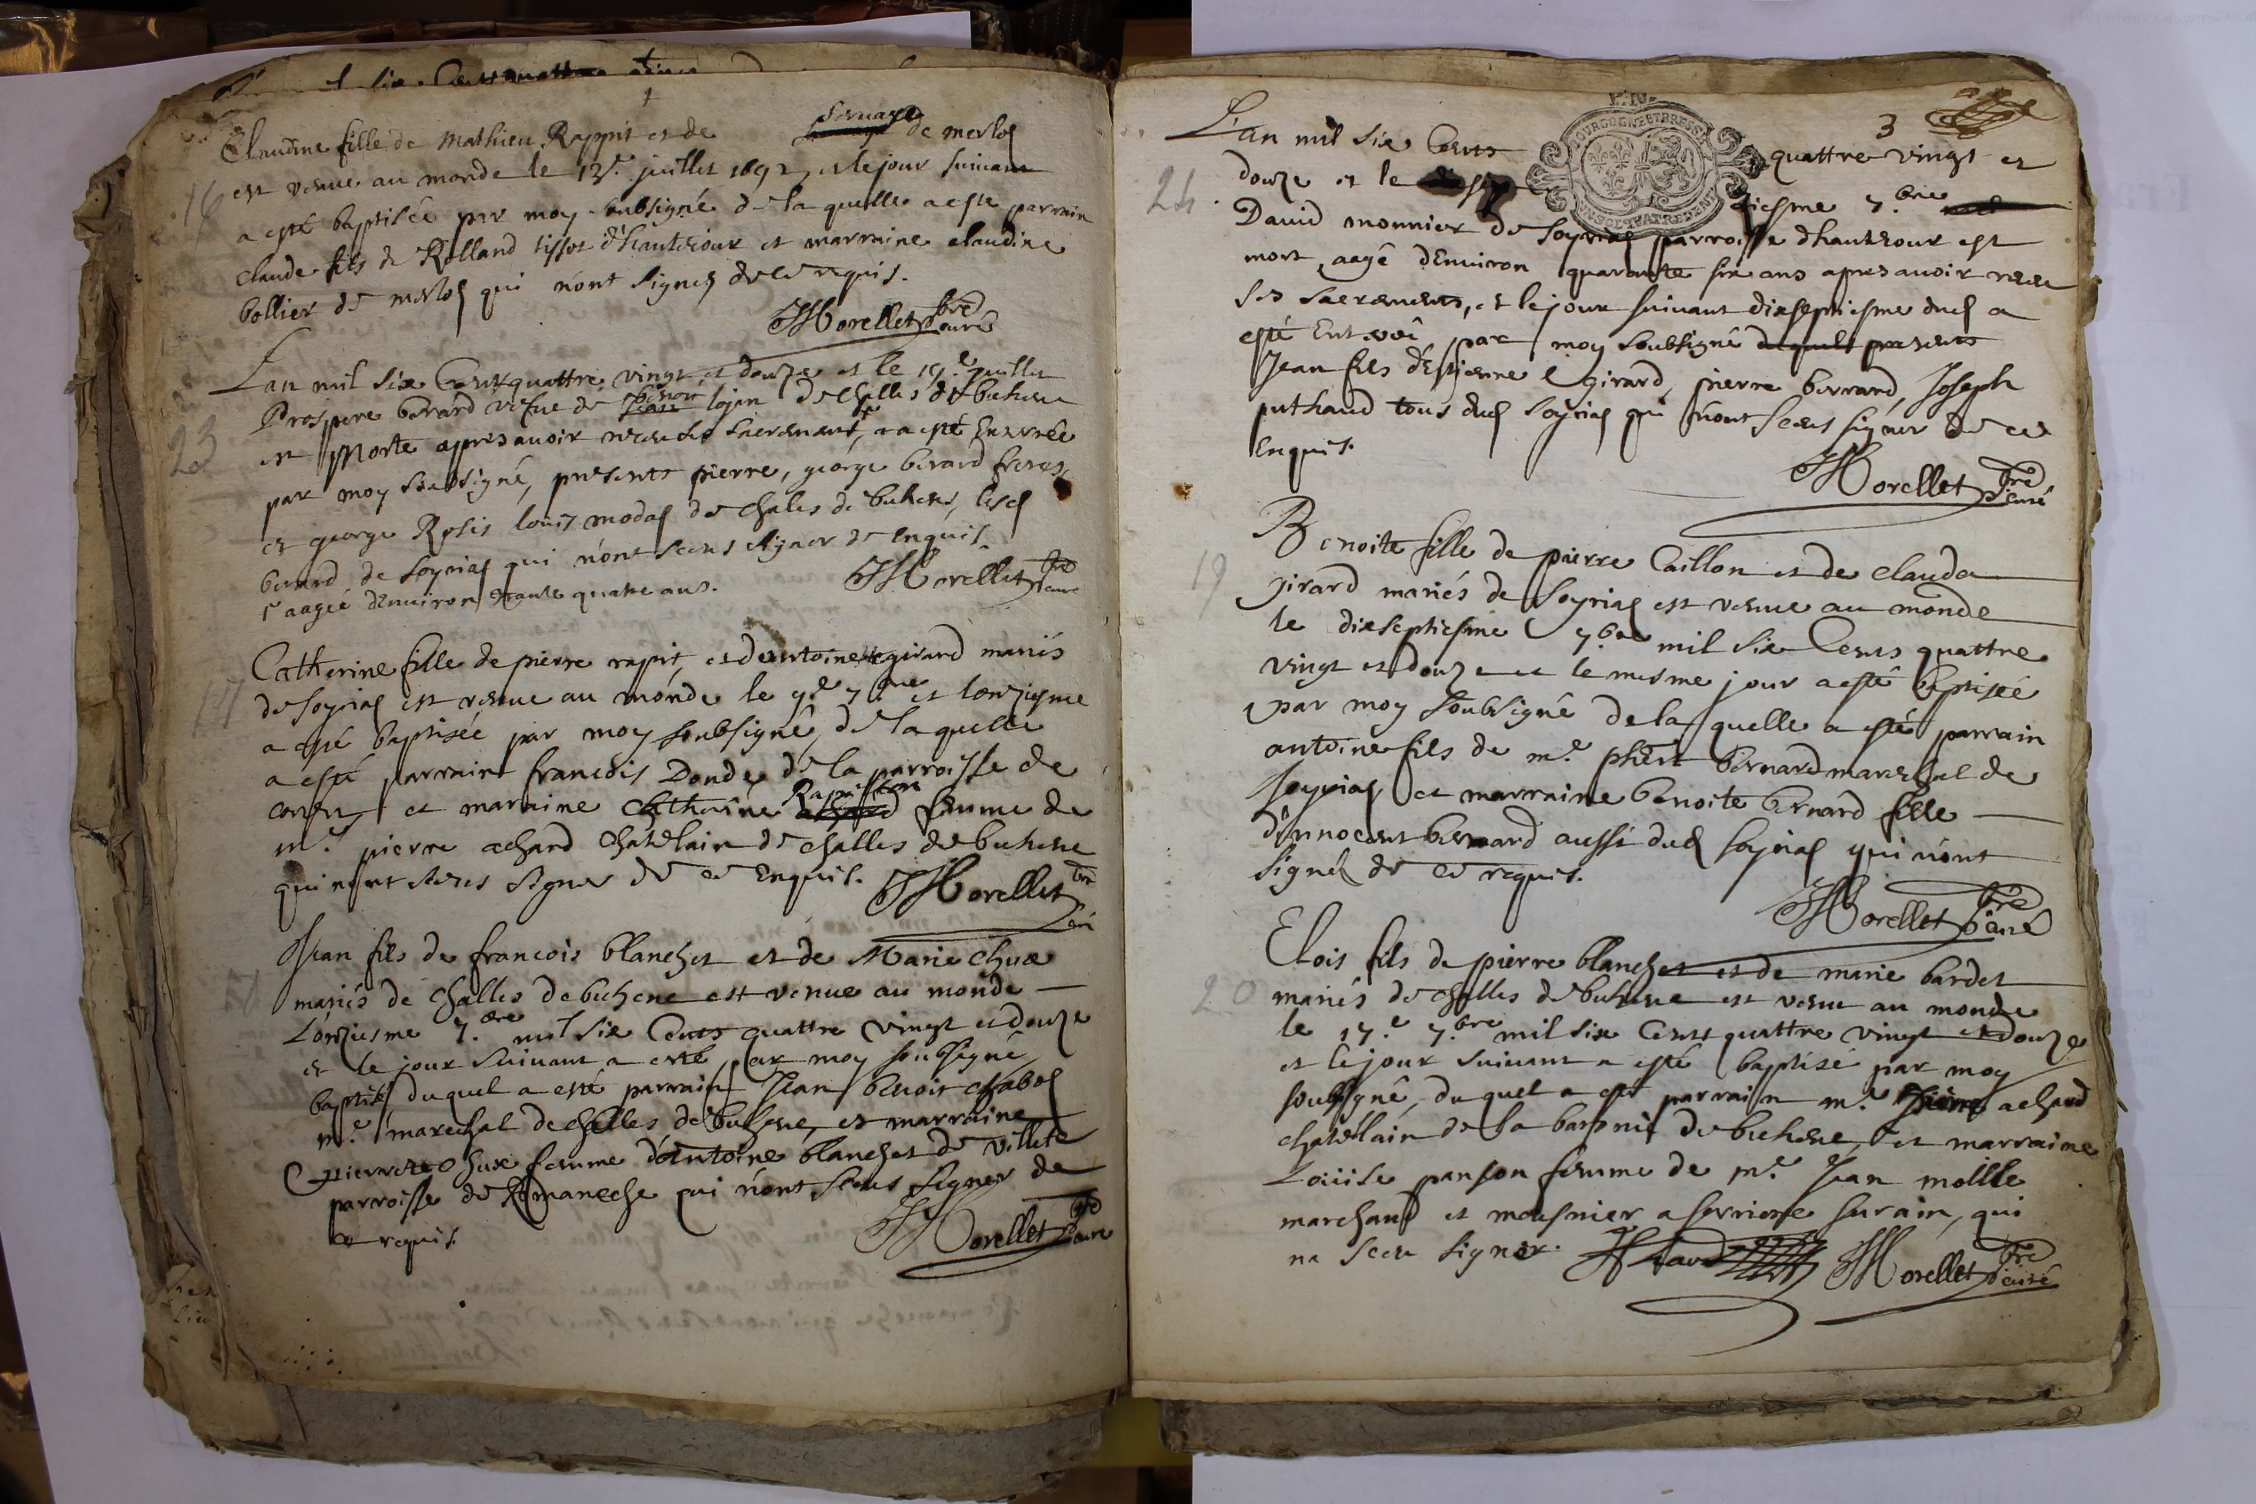 Claudine fille de Mathieu Rappit et de de merlos
16 est venue au monde le 13e. juillet 1692, et le jour suivant
a esté baptisée par moy soubsigné de la quelle a esté parrain
claude fils de Rolland tissot d'hauteriour et marraine claudine
bollier de merlos qui n'ont signes de ce requis.
JMorellet pbre curé
L'an mil six Cents quattre vingt et douze et le 19e. juillet
Prospere berrard vefue de benoit lojon de challes de buhene
23 est Morte apres avoir receu les sacrements, et a esté Enterrée
par moy soubsigné, presents pierre, george berard freres
et george louis modas de chales de buhene, lesd
berard de soyrias qui n'ont sceus signer de enquis.
aagée d'Environ quatre ans.
JMorellet pbre curé
Catherine fille de pierre rapit, et d'antoine girard mariés
17 de soyrias est venue au monde le 9e. 7bre et l'onziesme
a esté baptisée par moy soubsigné, de la quelle
a esté parrain francois Donde de la parroisse de
et marraine Catherine femme de
me. pierre achard chatelain de challes de buhene
qui n'ont sceus signer de ce Enquis.
JMorellet pbre curé
Jean fils de francois blanchet et de Marie chux
18 mariés de challes de buhene est venue au monde
L'onziesme 7.bre mil six Cents quattre vingt et douze
et le jour suivant a esté par moy soubsigné
baptisé duquel a esté parrain Jean benoit chabos
me. marechal de challes de buhene, et marraine
pierrete chux femme d'Antoine blanchet de villete
parroisse de Romaneche qui n'ont sceus signer de
ce requis.
JMorellet pbre curé
3
L'an mil six Cents quattre vingt et
24. douze et le 7.bre
BOURGOGNE ET BRESSE
David monnier de soyrias parroisse d'hauteriour est
mort, aagé d'Environ quarante six ans apres avoir receu
ses sacrements, et le jour suivant dixseptiesme dud a
esté Enterré par moy soubsigné presents
Jean fils d'Estienne girard, pierre berrard, Joseph
puthaud tous dud soyrias qui n'ont sceus signer de ce
Enquis.
JMorellet pbre curé
Benoite fille de pierre Caillon et de clauda
19 girard mariés de soyrias est venue au monde
le dixseptiesme 7.bre mil six Cents quattre
vingt et douze et le mesme jour a esté baptisée
par moy soubsigné de la quelle a esté parrain
antoine fils de me. bernard marechal de
soyrias et marraine benoite bernard fille
d'innocent bernard aussi dud soyrias qui n'ont
signés de ce requis.
JMorellet pbre curé
Elois fils de pierre blanchet et de marie bardet
20 mariés de challes de buhene est venu au monde
le 17.e 7.bre mil six Cents quattre vingt et douze
et le jour suivant a esté baptisé par moy
soubsigné, du quel a esté parrain me. pierre achard
chatelain de la baronnie de buhene, et marraine
Loüise panson femme de me. Jean molle
marchand et meusnier a serriere surain, qui
na sceu signer.
JMorellet pbre curé